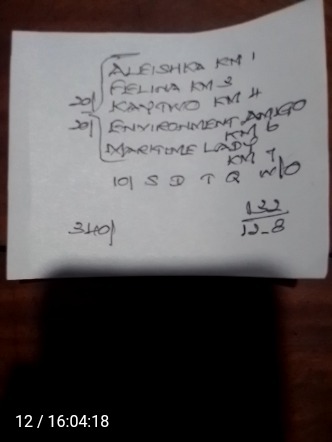 ALEISHKA KM 1
FELINA KM 3
20/ KAYTWO KM 4
20/ ENVIRONMENT AMIGO
KM 6
MARKTIME LADY
KM 7
10/ S D T Q W/O
122
340/ 12-8
12 / 16:04:18